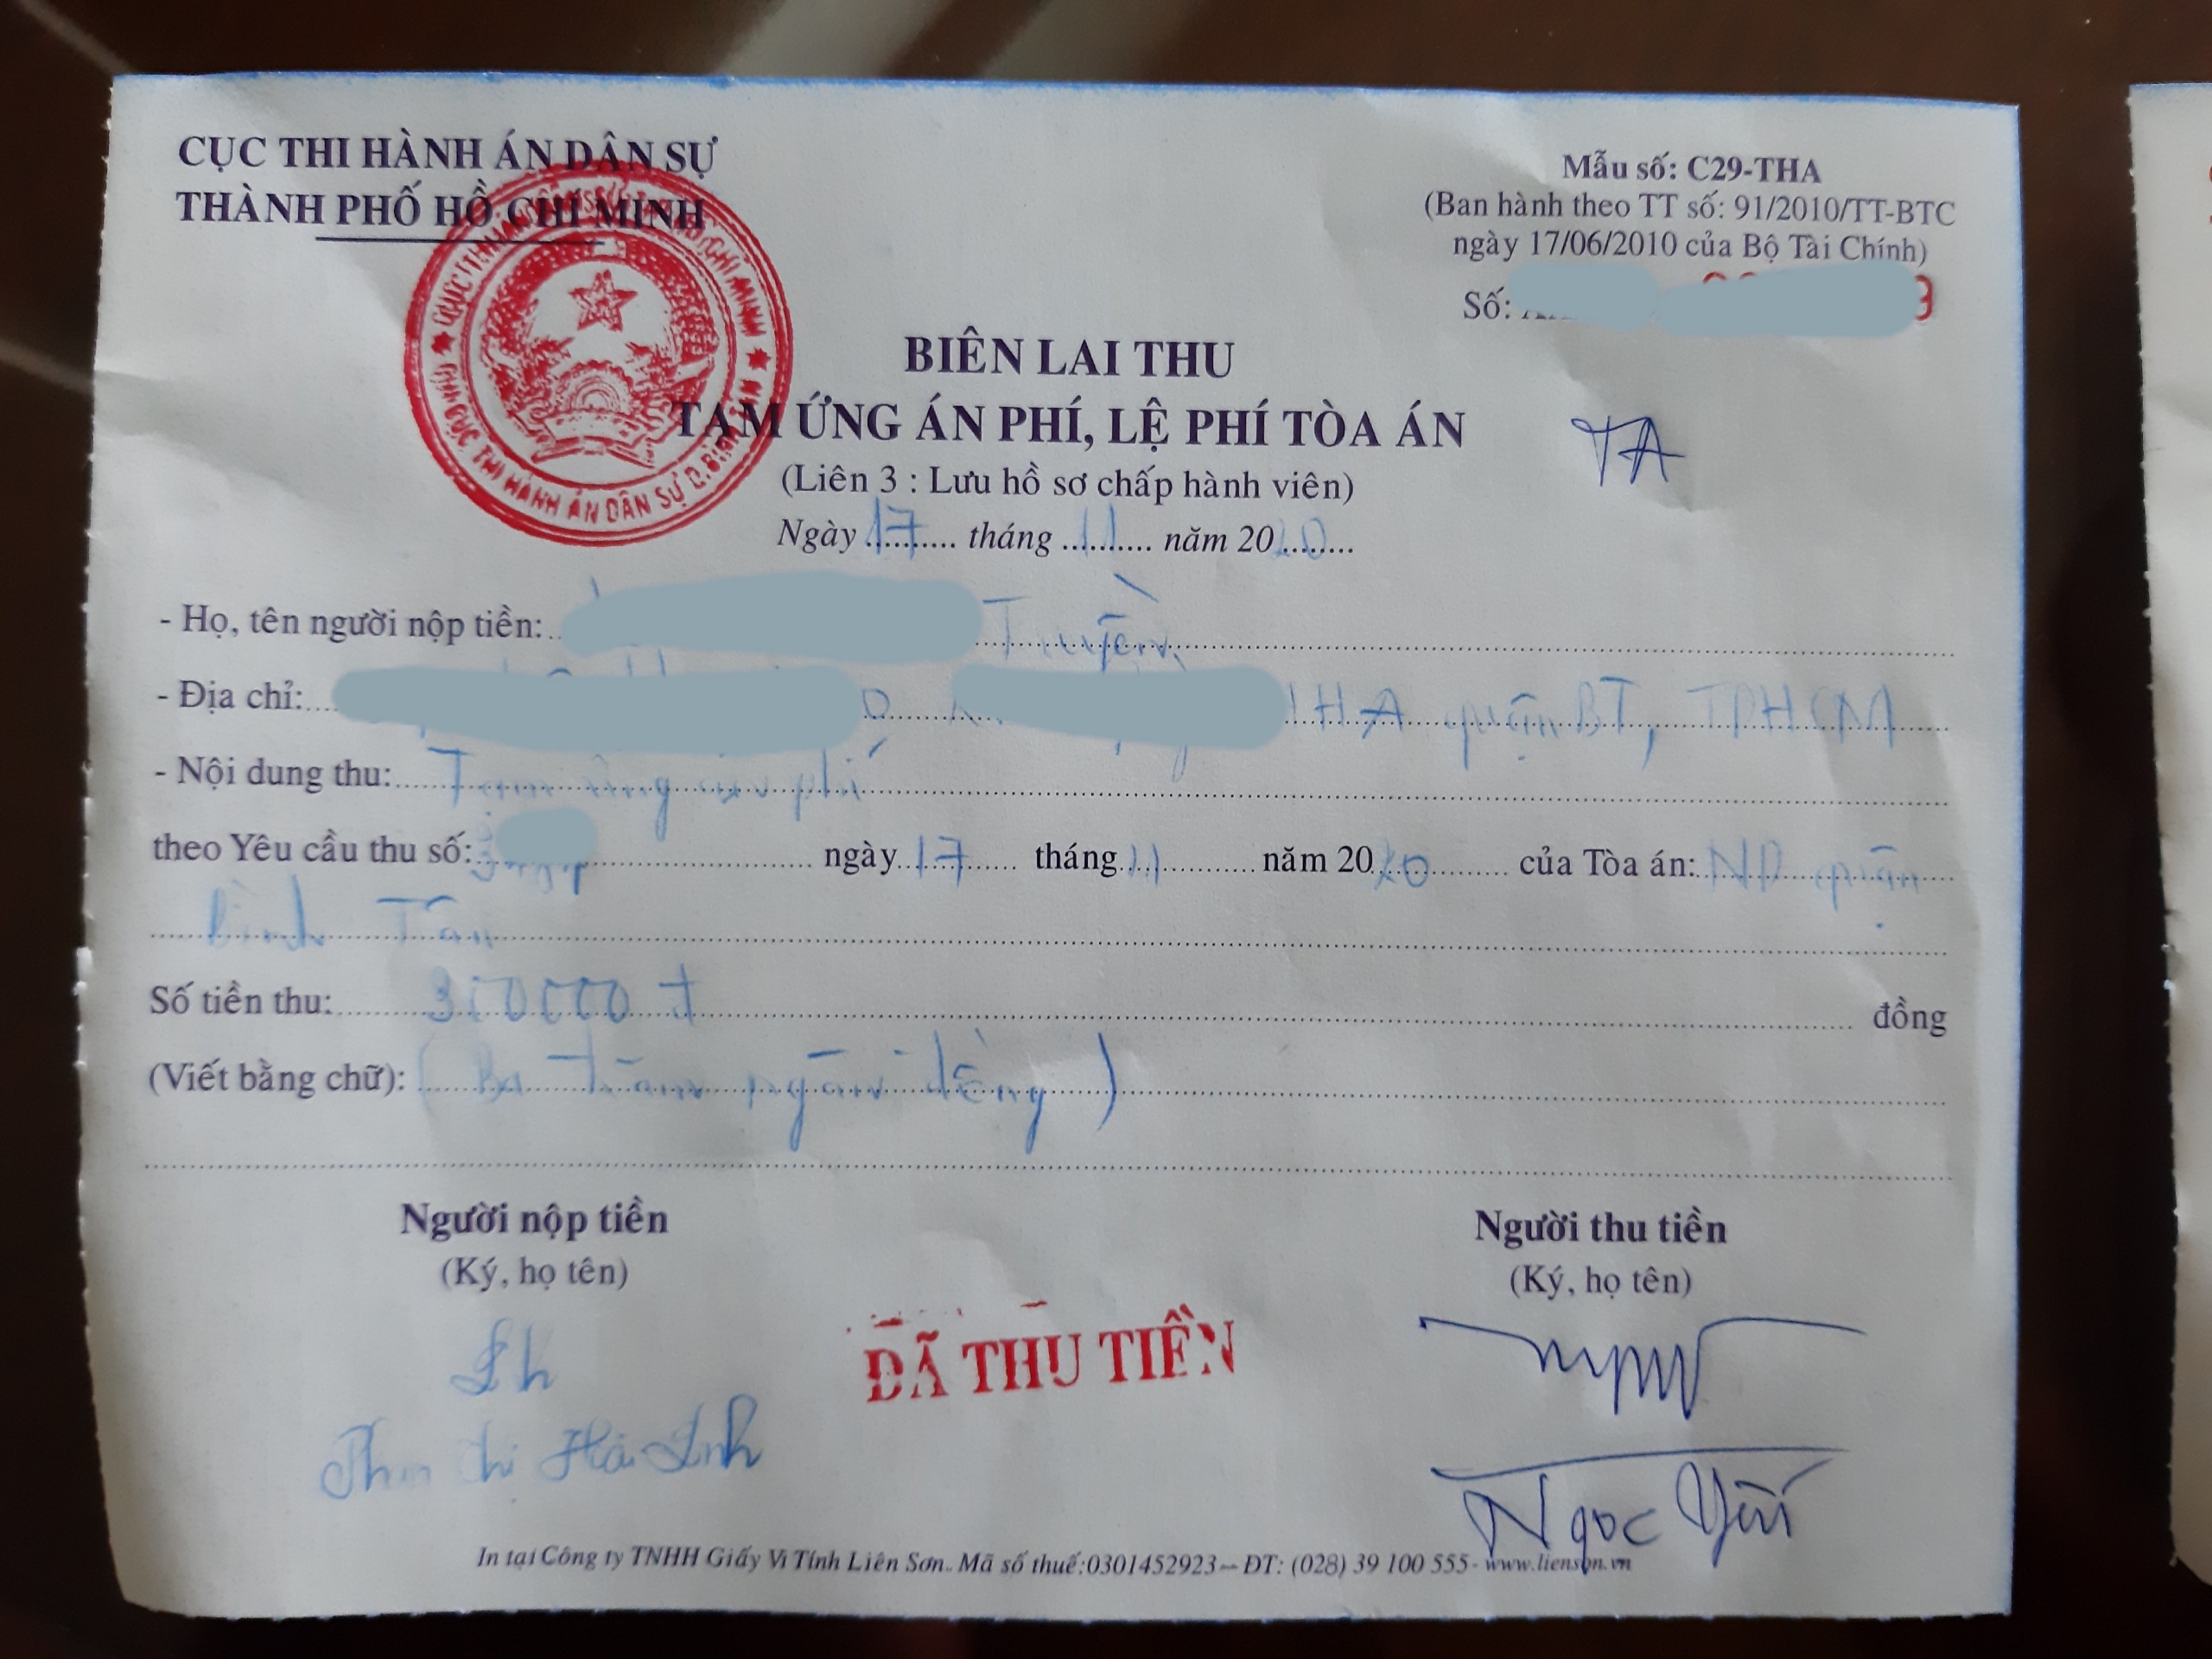 CỤC THI HÀNH ÁN DÂN SỰ
THÀNH PHỐ HỒ CHÍ MINH
Mẫu số: C29-THA
(Ban hành theo TT số: 91/2010/TT-BTC
ngày 17/06/2010 của Bộ Tài Chính)
Số:
BIÊN LAI THU
TẠM ỨNG ÁN PHÍ, LỆ PHÍ TÒA ÁN
TA
(Liên 3 : Lưu hồ sơ chấp hành viên)
Ngày 17 tháng 11 năm 2020
- Họ, tên người nộp tiền: Truyền
- Địa chỉ: HHA quận BT, TPHCM
- Nội dung thu: Tạm ứng án phí
theo Yêu cầu thu số: ngày 17 tháng 11 năm 2020 của Tòa án: ND quận
Bình Tân
Số tiền thu: 300000 đ đồng
(Viết bằng chữ): (Ba trăm ngàn đồng)
Người nộp tiền
(Ký, họ tên)
Người thu tiền
(Ký, họ tên)
ĐÃ THU TIỀN
Hải Linh
Ngọc Yến
In tại Công ty TNHH Giấy Vi Tính Liên Sơn. Mã số thuế:0301452923 – ĐT: (028) 39 100 555- www.lienson.vn